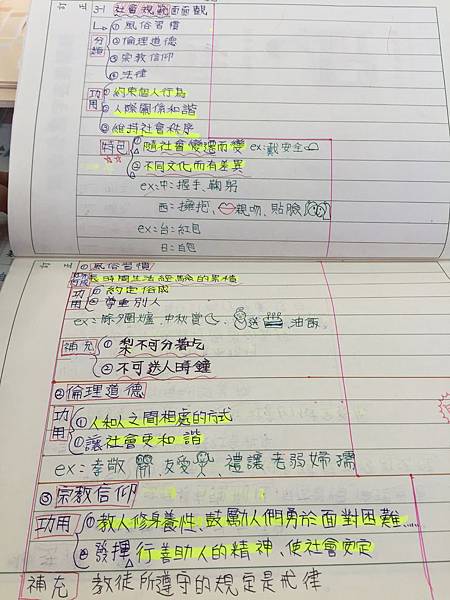 訂正
3-1 社會規範面面觀
分類
①風俗習慣
②倫理道德
③宗教信仰
④法律
功用
①約束個人行為
②人際關係和諧
③維持社會秩序
特色
①隨社會變遷而變 ex:戴安全
②不同文化而有差異
ex:中:握手、鞠躬
西:擁抱、親吻、貼臉
ex:台:紅包
日:白包
訂正
①風俗習慣
長時間生活經驗的累積
功用
①約定俗成
②尊重別人
ex:除夕圍爐、中秋賞、送、油飯
補充
①梨不可分著吃
②不可送人時鐘
②倫理道德
功用
①人和人之間相處的方式
②讓社會更和諧
ex:孝敬、友愛、禮讓老弱婦孺
③宗教信仰
功用
①教人修身養性、鼓勵人們勇於面對困難……
②發揮行善助人的精神、使社會安定
補充 教徒所遵守的規定是戒律